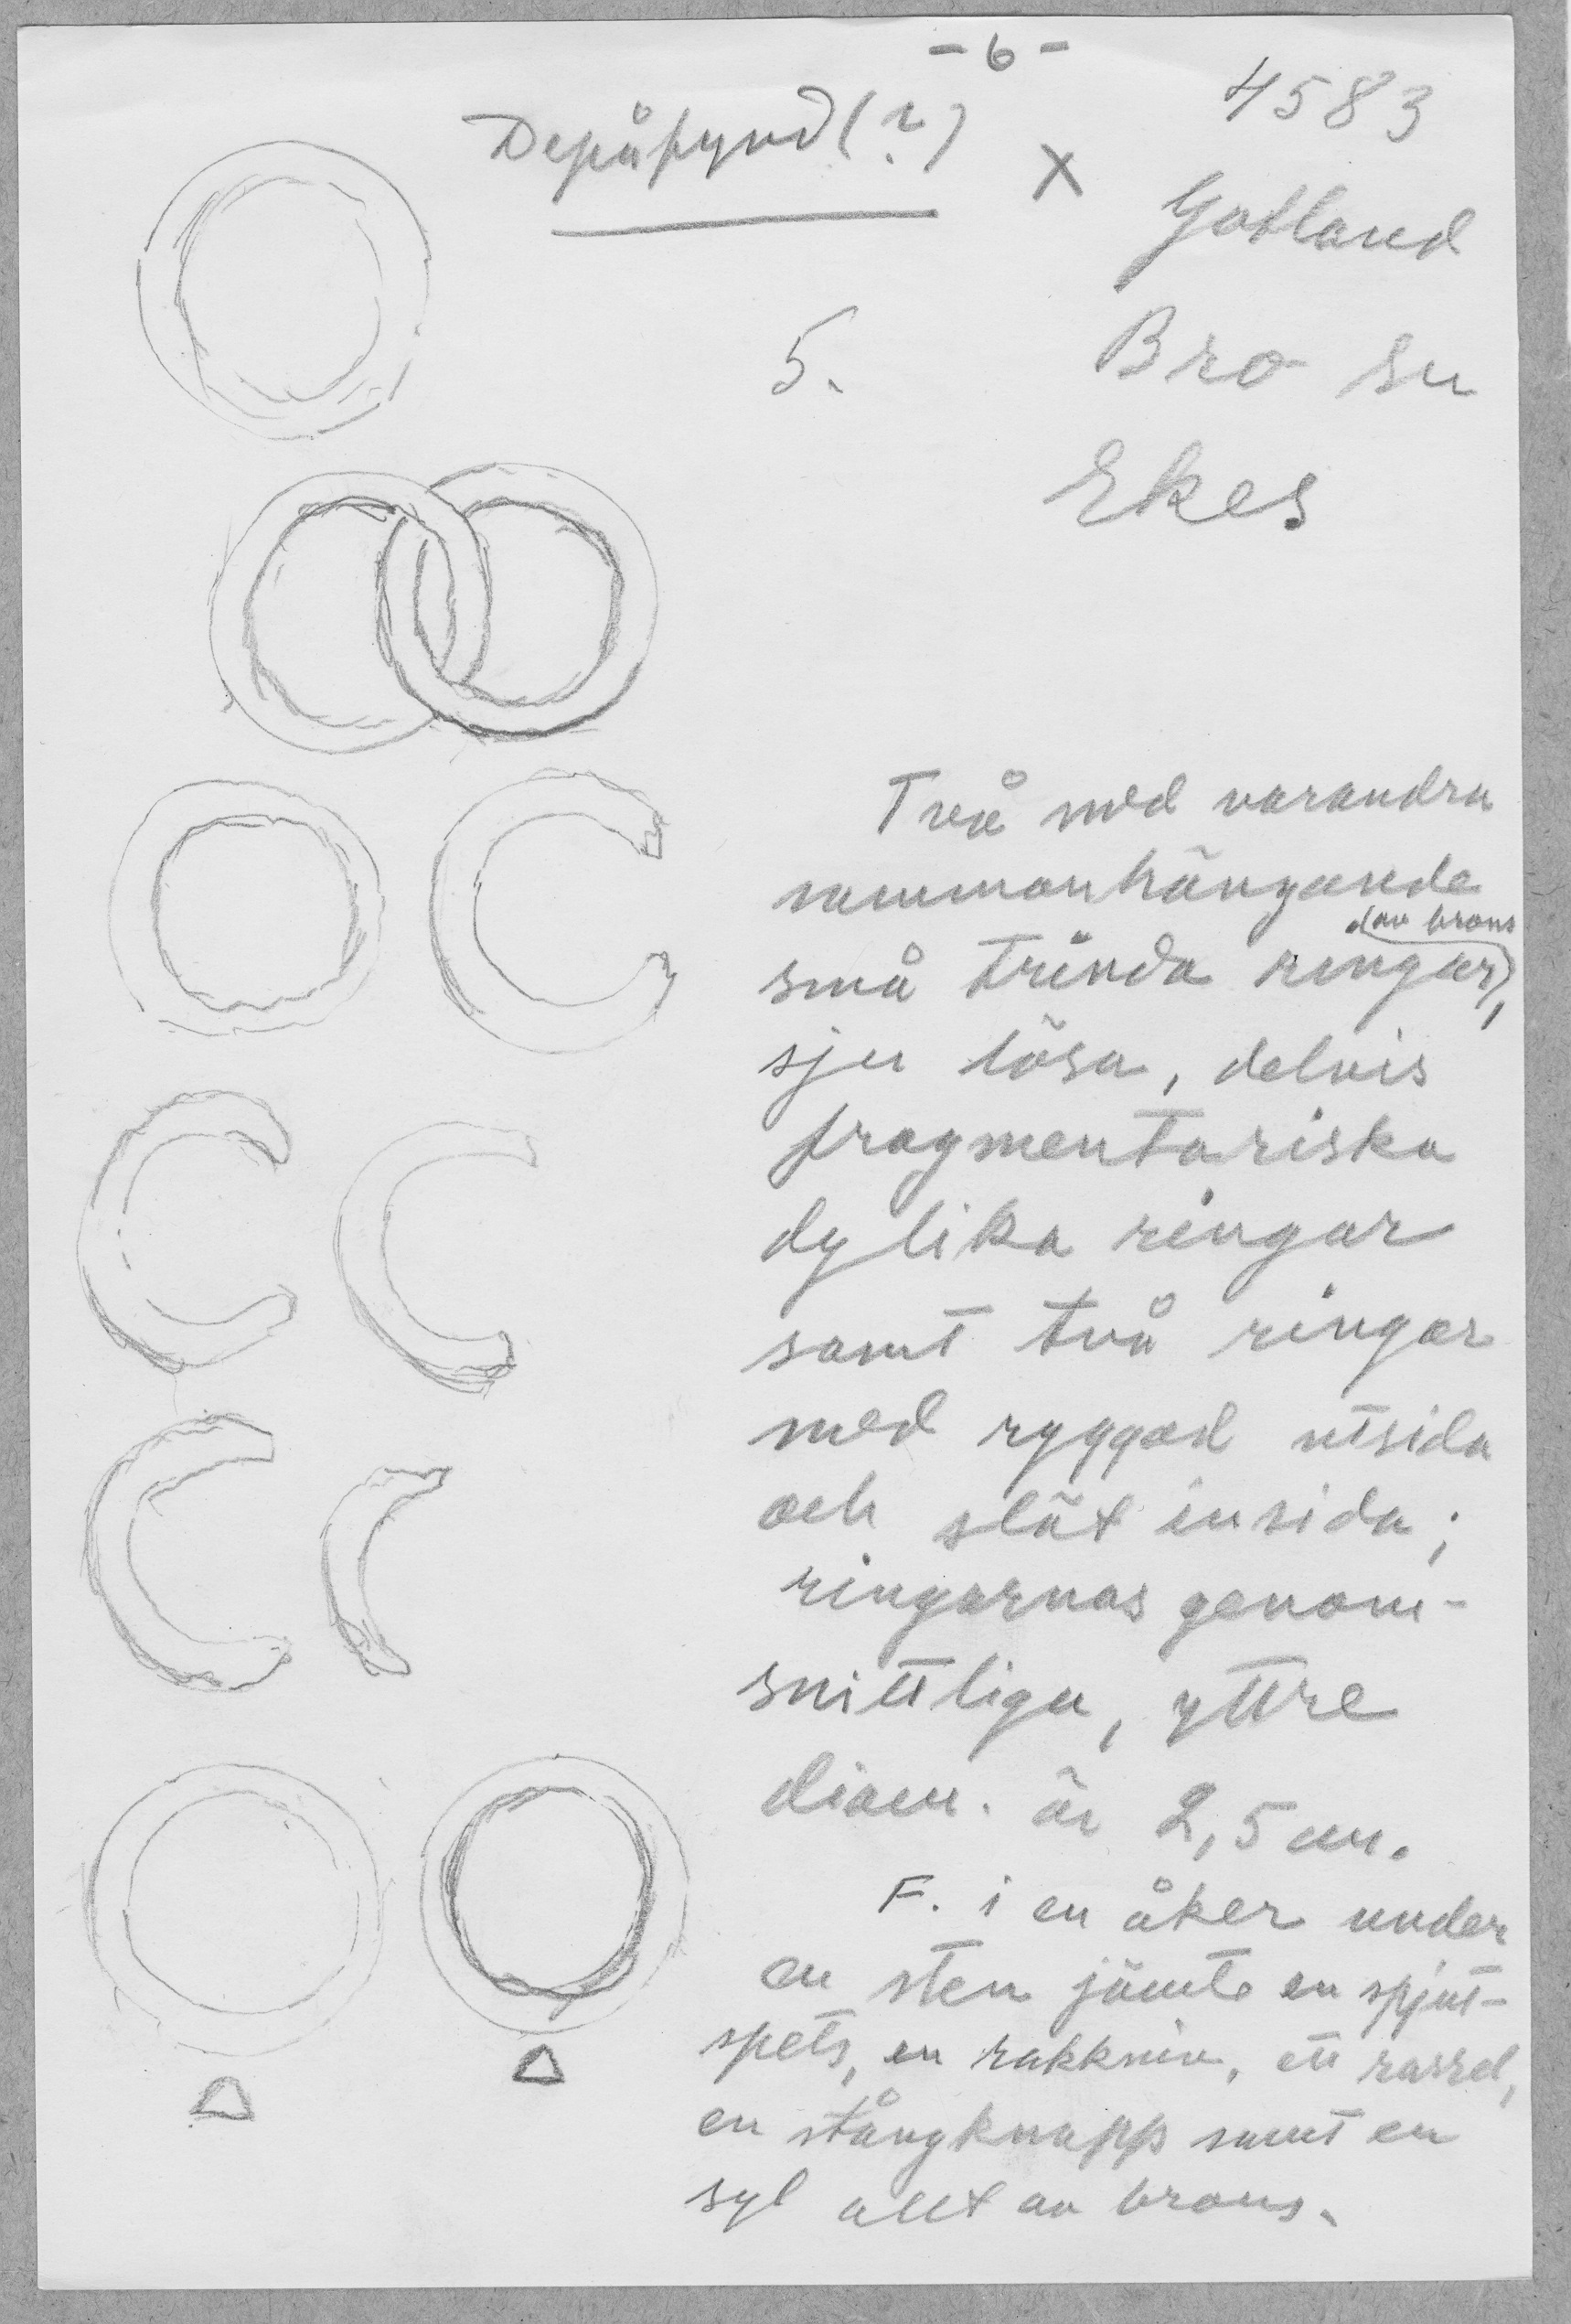 - 6 -
Depåfynd (?)
4583
x
Gotland
5.
Bro sn
Ekes
Två med varandra
sammanhängande
små trinda ringar (av brons),
sju lösa, delvis
fragmentariska
dylika ringar
samt två ringar
med ryggad utsida
och slät insida;
ringarnas genom-
snittliga, yttre
diam. är 2,5 cm.
F. i en åker under
en sten jämte en spjut-
spets, en rakkniv, ett rassel,
en stångknapp samt en
syl allt av brons.